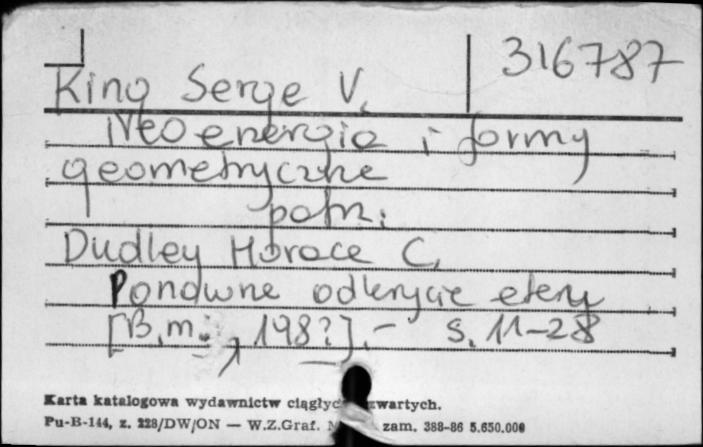 316787
King Serge V.
Neoenergia i formy
geometryczne
patrz:
Dudley Horace C.
Ponowne odkrycie eteru
[B.m., 198?].- s. 11-28
Karta katalogowa wydawnictw
Pu-B-144, z. 228/DW/ON — W.Z.Graf. zam. 388-86 5.650.000